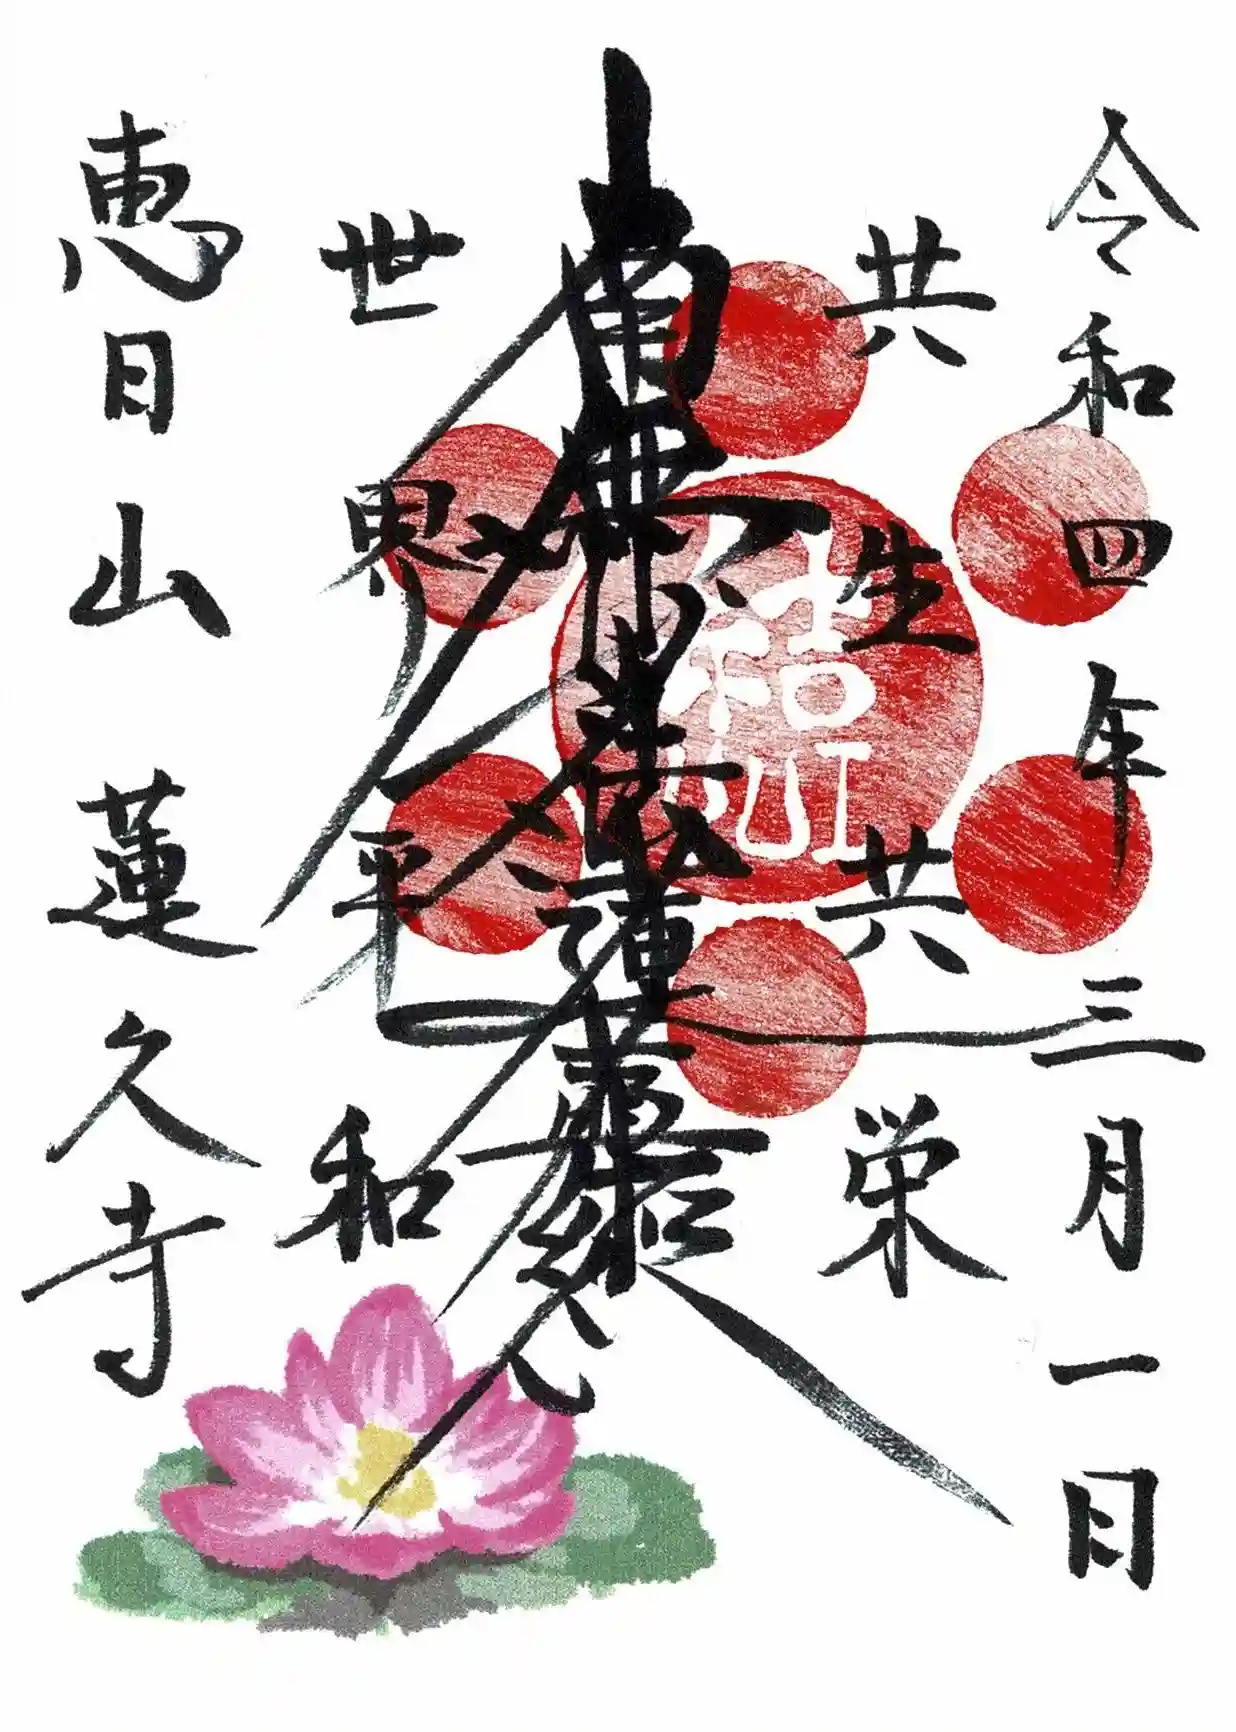 令和四年三月一日
共生共栄
南無妙法蓮華経
世界平和
恵日山 蓮久寺
結
YUI